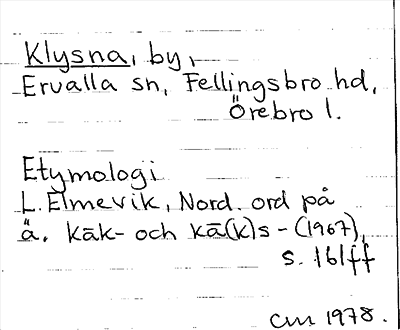 Klysna, by,
Ervalla sn, Fellingsbro hd,
Örebro l.
Etymologi
L. Elmevik, Nord. ord på
ä. kāk- och kā(k)s- (1967),
s. 161ff
cm 1978.